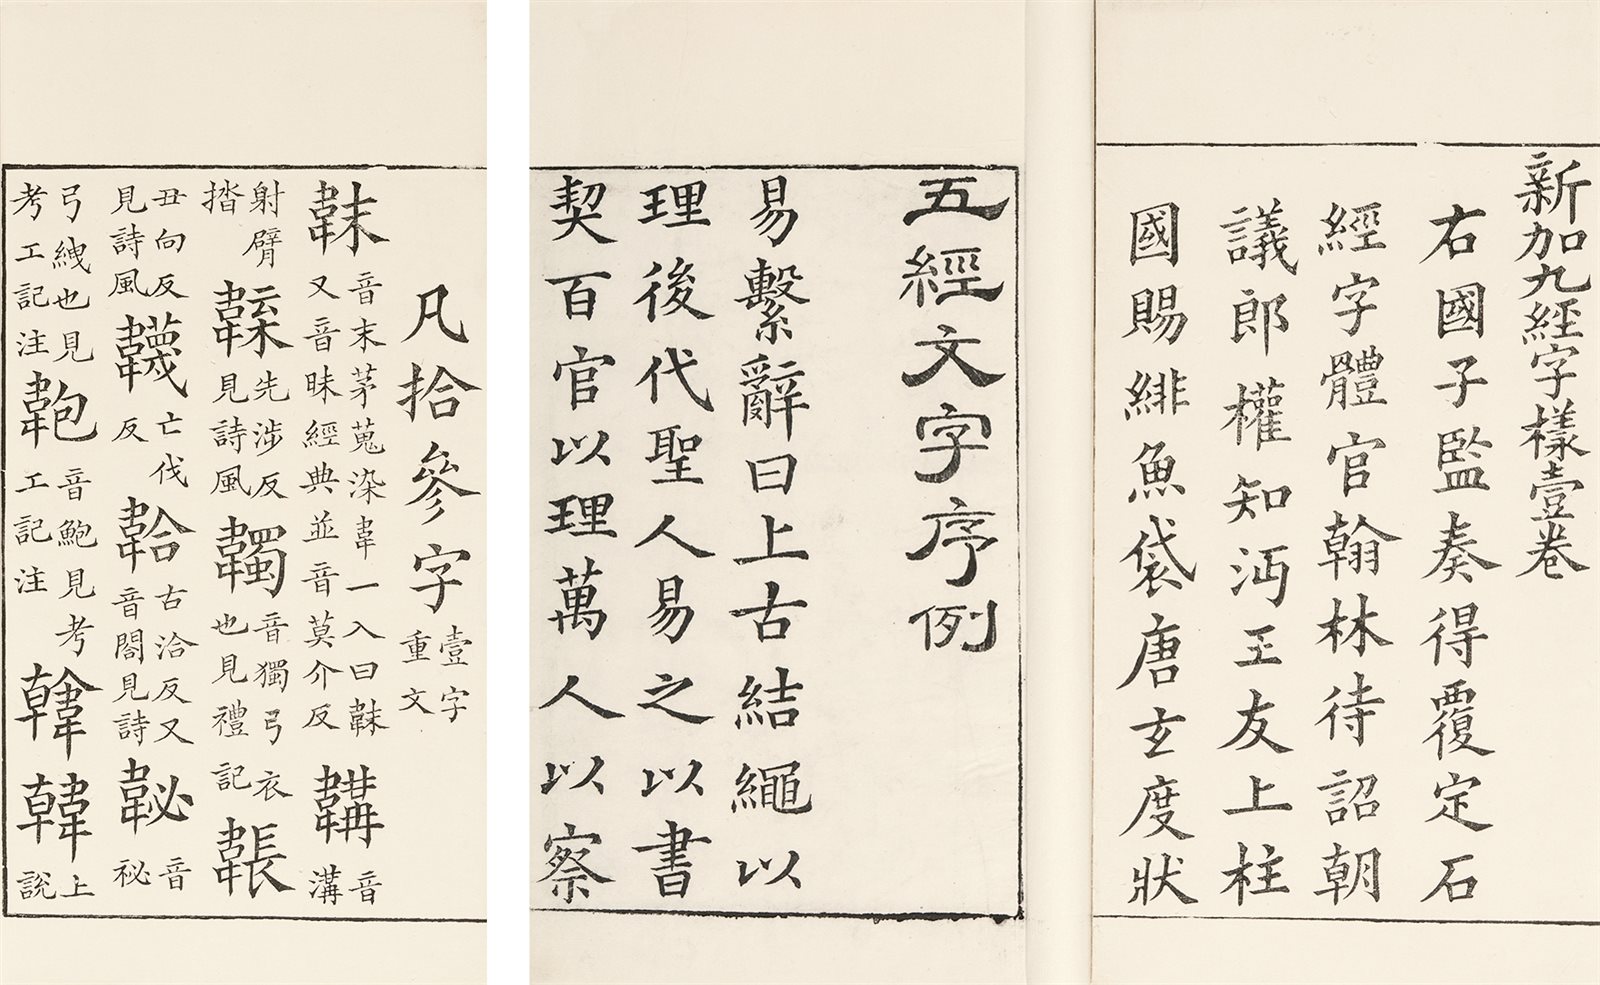 新加九經字樣壹卷
右國子監奏得覆定石
經字體官翰林待詔朝
議郎權知沔王友上柱
國賜緋魚袋唐玄度狀
五經文字序例
易繫辭曰上古結繩以
理後代聖人易之以書
契百官以理萬人以察
凡拾參字壹字重文
韎音末茅蒐染韋一入曰韎又音昧經典並音莫介反韝音溝
射臂韘先涉反見詩風韣音獨弓衣也見禮記韔
丑向反見詩風韤亡伐反韐古洽反又音閤見詩䪐音祕
弓紲也見考工記注音鮑見考工記注𩏑韓上說